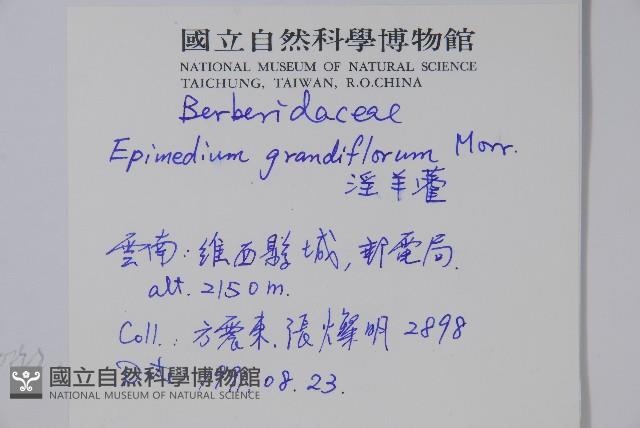 國立自然科學博物館
NATIONAL MUSEUM OF NATURAL SCIENCE
TAICHUNG, TAIWAN, R.O.CHINA
Berberidaceae
Epimedium grandiflorum Morr.
淫羊藿
雲南: 維西縣城, 郵電局.
alt. 2150 m.
Coll.: 方震東, 張燦明 2898
08. 23.
國立自然科學博物館
NATIONAL MUSEUM OF NATURAL SCIENCE